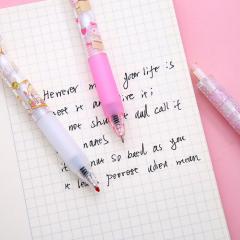 However m your life is
meet it and live it;
not shu it and call it
names
it not so bad as you
it looks poorest when mean